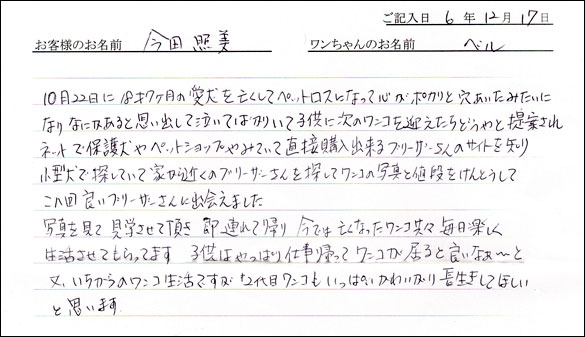 ご記入日 6 年 12 月 17 日
お客様のお名前 今田 照美 ワンちゃんのお名前 ベル
10月22日に 18才7ヶ月の愛犬を亡くしてペットロスになって心がポカリと穴あいたみたいに
なりなにかあると思い出して泣いてばかりいて子供に次のワンコを迎えたらどうやと提案され
ネットで保護犬やペットショップやみていて直接購入出来るブリーザーさんのサイトを知り
小型犬で探していて家から近くのブリーザーさんを探してワンコの写真と値段をけんとうして
この回良いブリーザーさんに出会えました
写真を見て見学させて頂き即連れて帰り今では亡くなったワンコ共々毎日楽しく
生活させてもらってます 子供はやっぱり仕事帰ってワンコが居ると良いなぁ〜と
又いちからのワンコ生活ですが2代目ワンコもいっぱいかわいがり長生きしてほしい
と思います.